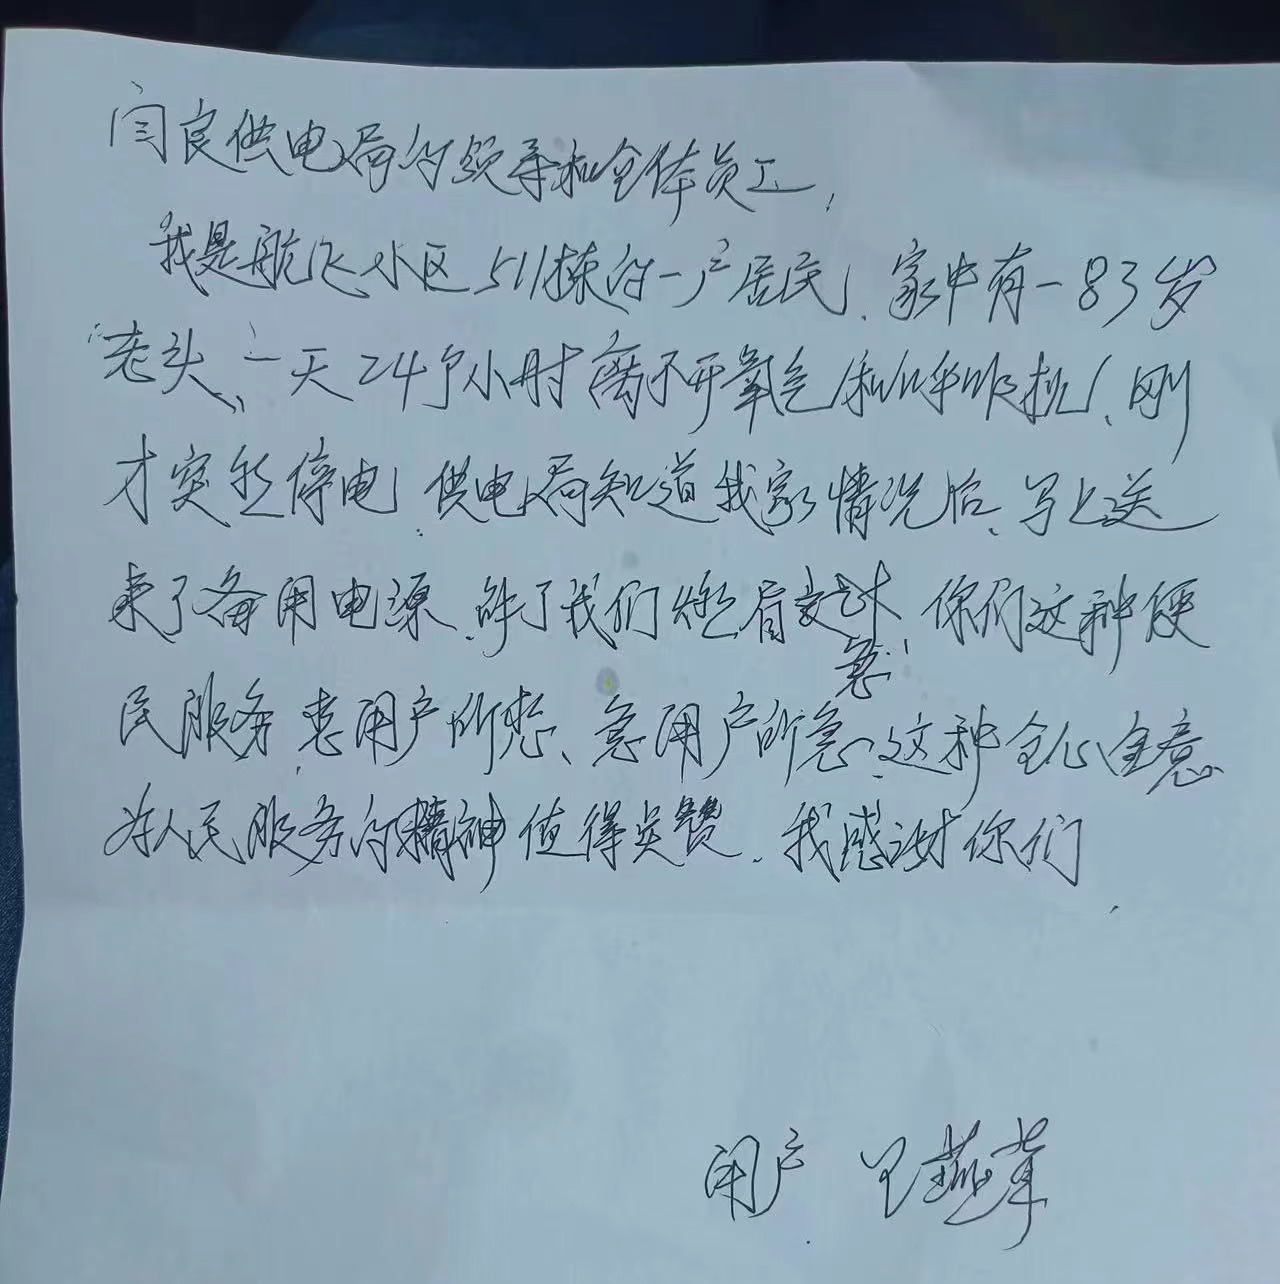 闫良供电局的领导和全体员工,
我是航飞小区511栋的一户居民、家中有一83岁
老头、一天24个小时离不开氧气和呼吸机、刚
才突然停电,供电局知道我家情况后、马上送
来了备用电源、解了我们燃眉之
急
你们这种便
民服务,想用户所想、急用户所急、这种全心全意
为人民服务的精神值得点赞、我感谢你们
用户